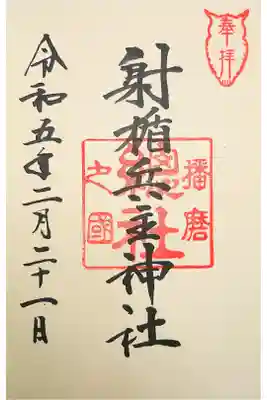 奉拝
射楯兵主神社
播磨
總社
之國
令和五年二月二十一日